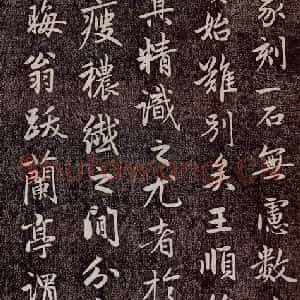 家刻一石無慮數
始難別矣王順
其精識之尤者於
瘦穠纖之間分
晦翁跋蘭亭謂